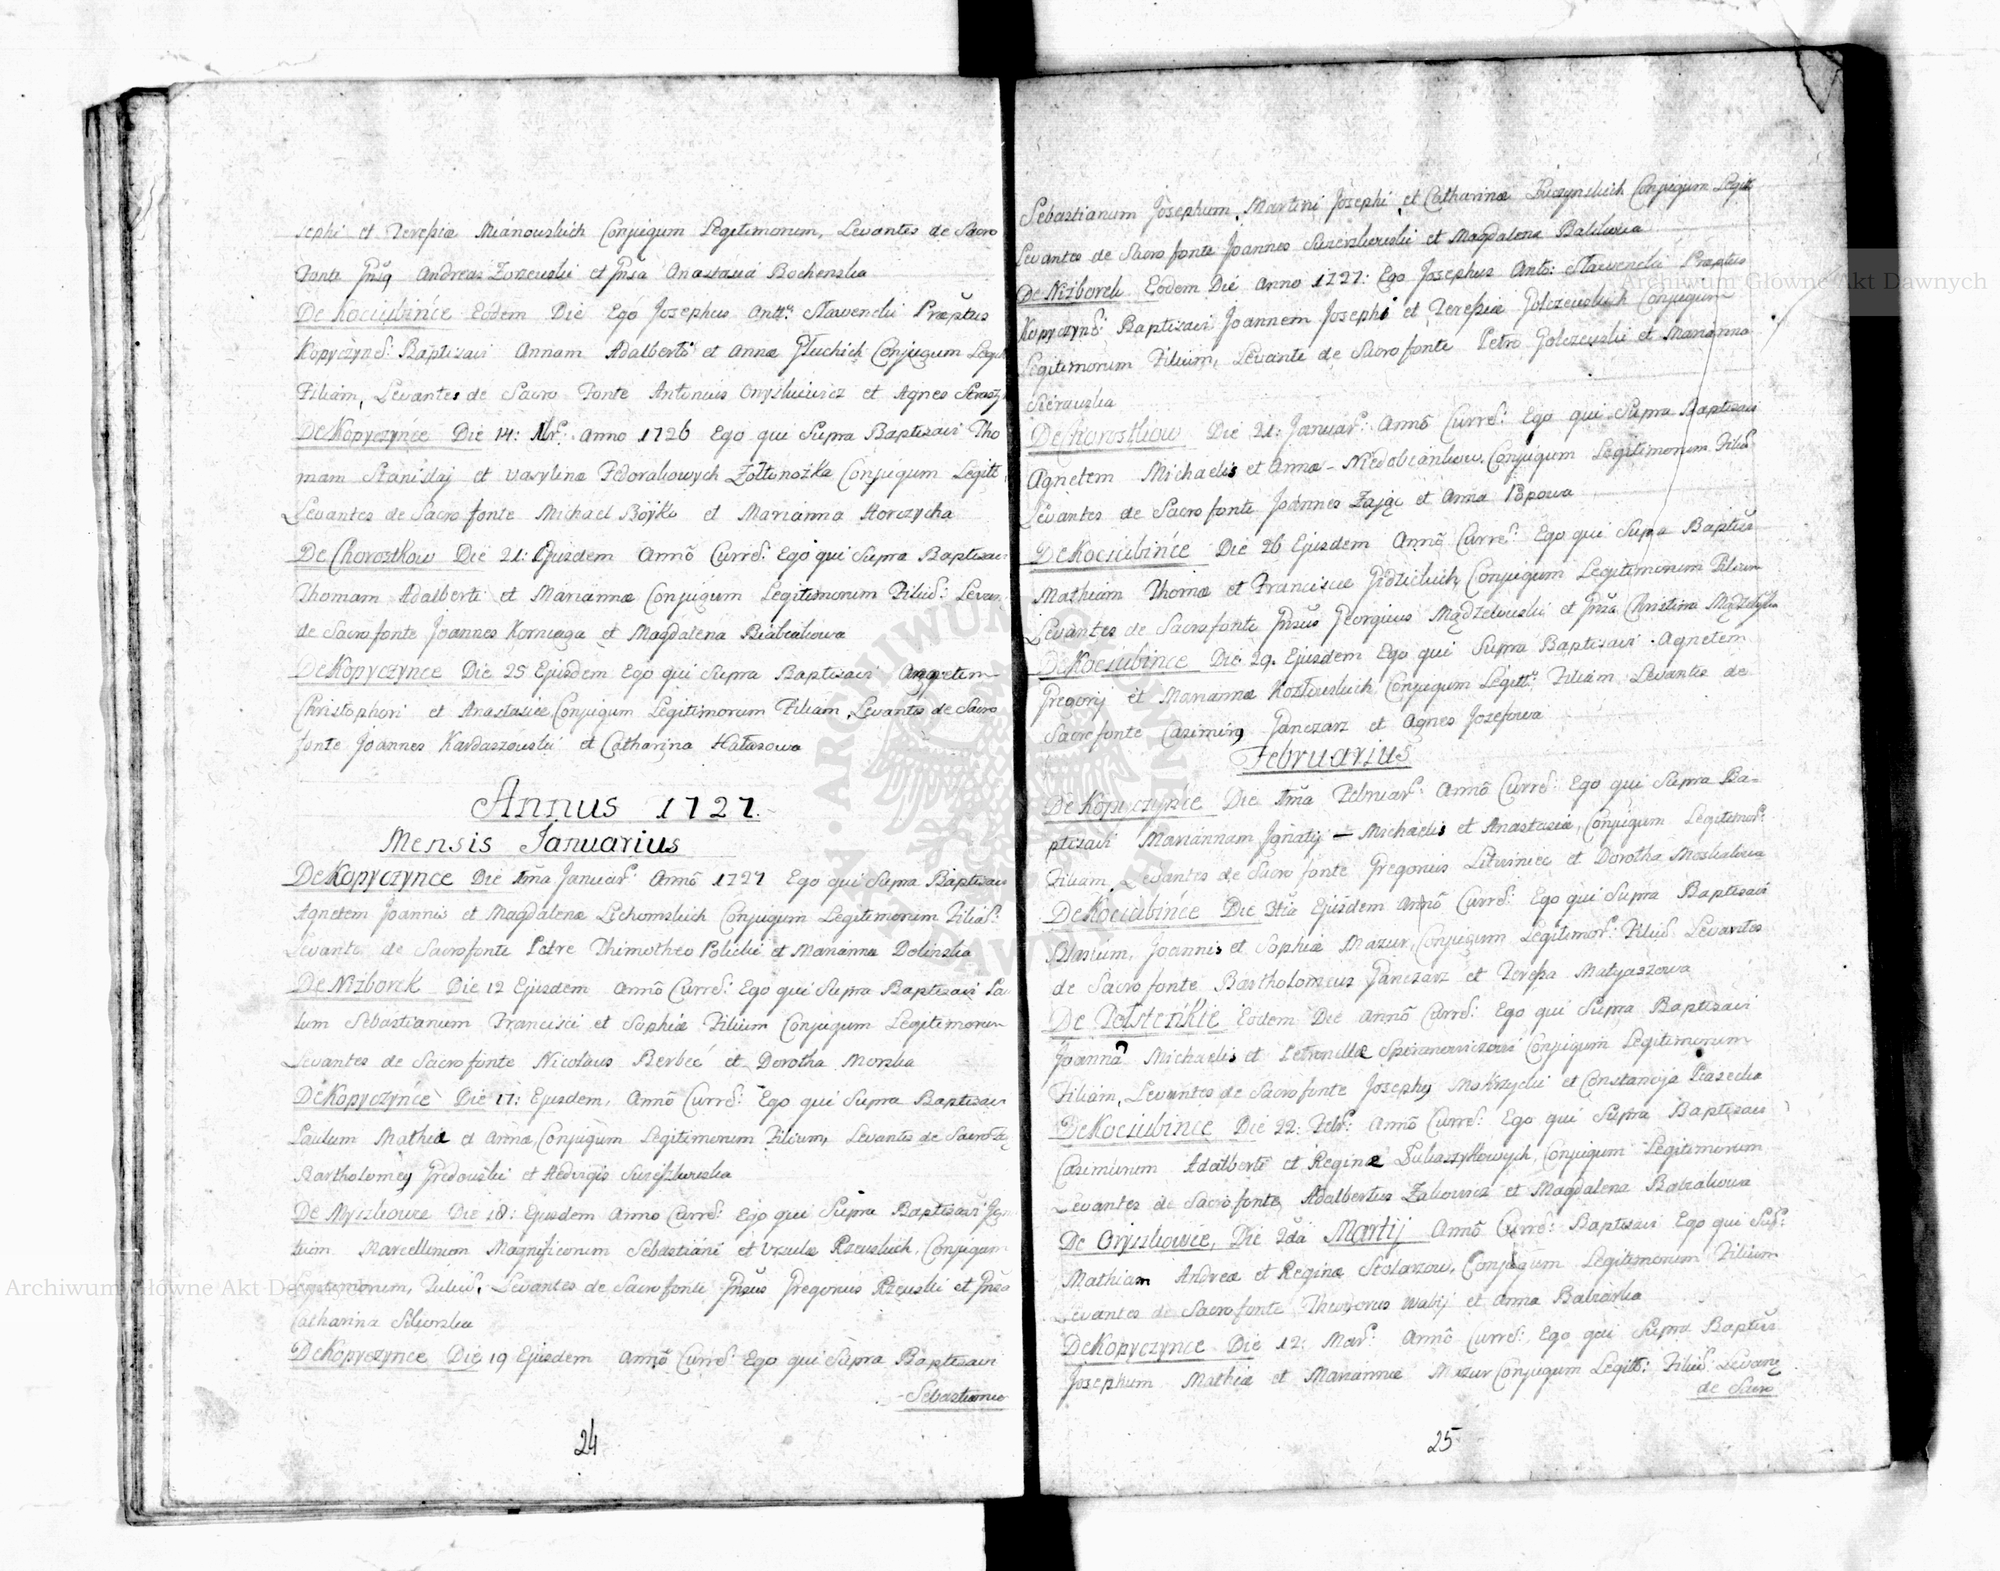 sephi et Teresiæ Mianowskich Conjugum Legitimorum, Levantes de Sacro
Fonte Andreas Zorzewski et Anastasia Bochenska
De Kociubince Eodem Die Ego Josephus Antt: Sławencki Præptus
Kopyczynˢ: Baptisavi Annam Adalberti et Annæ Głuchich Conjugum Legit
Filiam, Levantes de Sacro Fonte Antonius Oryszkiewicz et Agnes
De Kopyczynce Die 14: Anno 1726 Ego qui Supra Baptisavi Tho
mam Stanislai et Vasylinæ Fedorakowych Zołtonożka Conjugum Legitt
Levantes de Sacro fonte Michael Boyko et Marianna Horczycha
De Chorostkow Die 21: Ejusdem Anno Curreˢ: Ego qui Supra Baptisavi
Thomam Adalberti et Mariannæ Conjugum Legitimorum Filiuˢ: Levan
de Sacro fonte Joannes Korniaga et Magdalena Biabiakowa
De Kopyczynce Die 25 Ejusdem Ego qui Supra Baptisavi Agnetem
Christophori et Anastasiæ Conjugum Legitimorum Filiam, Levantes de Sacro
fonte Joannes Kardaszowski et Catharina Hałasowa
Annus 1727.
Mensis Januarius
De Kopyczynce Die 1ma Januarˢ: Anno 1727 Ego qui Supra Baptisavi
Agnetem Joannis et Magdalenæ Lichomskich Conjugum Legitimorum Filiaˢ:
Levante de Sacro fonte Petro Thimotheo Policki et Marianna Dolinska
De Nizborek Die 12 Ejusdem Anno Curreˢ: Ego qui Supra Baptisavi Pau
lum Sebastianum Francisci et Sophiæ Filium Conjugum Legitimorum
Levantes de Sacro fonte Nicolaus Berbeć et Dorotha Morska
De Kopyczynce Die 17: Ejusdem, Anno Curreˢ: Ego qui Supra Baptisavi
Paulum Mathiæ et Annæ, Conjugum Legitimorum Filium, Levantes de Sacro
Bartholomeus Gredowski et Hedvigis
De Myszkowce Die 18: Ejusdem Anno Curreˢ: Ego qui Supra Baptisavi
Marcellinum Magnificorum Sebastiani et Ursulæ Rzewskich, Conjugum
Legitimorum, Filiuˢ, Levantes de Sacro fonte Gregorius Rzewski et
Catharina
De Kopyczynce Die 19 Ejusdem Anno Curreˢ: Ego qui Supra Baptisavi
Sebastianum
24
Sebastianum Josephum, Martini Josephi et Catharinæ Conjugum Legitt
Levantes de Sacro fonte Joannes et Magdalena Balikowa
De Nizborek Eodem Die Anno 1727: Ego Josephus Antt: Sławencki Præptus
Kopyczynˢ: Baptisavi Joannem Josephi et Teresiæ Golczewskich Conjugum
Legitimorum Filium, Levante de Sacro fonte Petro Golczewski et Marianna
Sierawska
De Chorostkow Die 21: Januarˢ: Anno Curreˢ: Ego qui Supra Baptisavi
Agnetem Michaelis et Annæ - Conjugum Legitimorum Filiaˢ
Levantes de Sacro fonte Joannes Zając et Anna Popowa
De Kociubince Die 26 Ejusdem Anno Curreˢ: Ego qui Supra Baptisˢ
Mathiam Thomæ et Franciscæ Conjugum Legitimorum Filium
Levantes de Sacro fonte Georgius Mądzelowski et Christina
De Kociubince Die 29. Ejusdem Ego qui Supra Baptisavi Agnetem
Gregorij et Mariannæ Kozłowskich Conjugum Legitt: Filiam Levantes de
Sacro fonte Casimirus Ganczarz et Agnes Jozefowa
Februarius
De Kopyczynce Die 1ma Februarˢ: Anno Curreˢ: Ego qui Supra Ba-
ptisavi Mariannam Ignatij - Michaelis et Anastasiæ, Conjugum Legitimorˢ:
Filiam Levantes de Sacro fonte Gregorius Litwiniec et Dorotha Moskalowa
De Kociubince Die 3tia Ejusdem Anno Curreˢ: Ego qui Supra Baptisavi
Blasium, Joannis et Sophiæ Mazur, Conjugum Legitimorˢ: Filiuˢ Levantes
de Sacro fonte Bartholomeus Ganczarz et Teresa Matyaszowa
De Tołstenkie Eodem Die Anno Curreˢ: Ego qui Supra Baptisavi
Joanna Michaelis et Petronillæ Conjugum Legitimorum
Filiam, Levantes de Sacro fonte Josephus Mokrzycki et Constancija Piasecka
De Kociubince Die 22: Febrˢ: Anno Curreˢ: Ego qui Supra Baptisavi
Casimirum Adalberti et Reginæ Łukaszykowych, Conjugum Legitimorum
Levantes de Sacro fonte, Adalbertus Zakowicz et Magdalena Babiakowa
De Oryszkowce, Die 2da Martij Anno Curreˢ: Baptisavi Ego qui Supˢ:
Mathiam Andreæ et Reginæ Stolarzow, Conjugum Legitimorum Filium
Levantes de Sacro fonte, Theodorus Wabij et Anna Babiarka
De Kopyczynce Die 12: Marˢ: Anno Curreˢ: Ego qui Supra Baptisˢ
Josephum Mathiæ et Mariannæ Mazur Conjugum Legitt: Filiuˢ Levantes
de Sacro
25
Archiwum Główne Akt Dawnych
Archiwum Główne Akt Dawnych